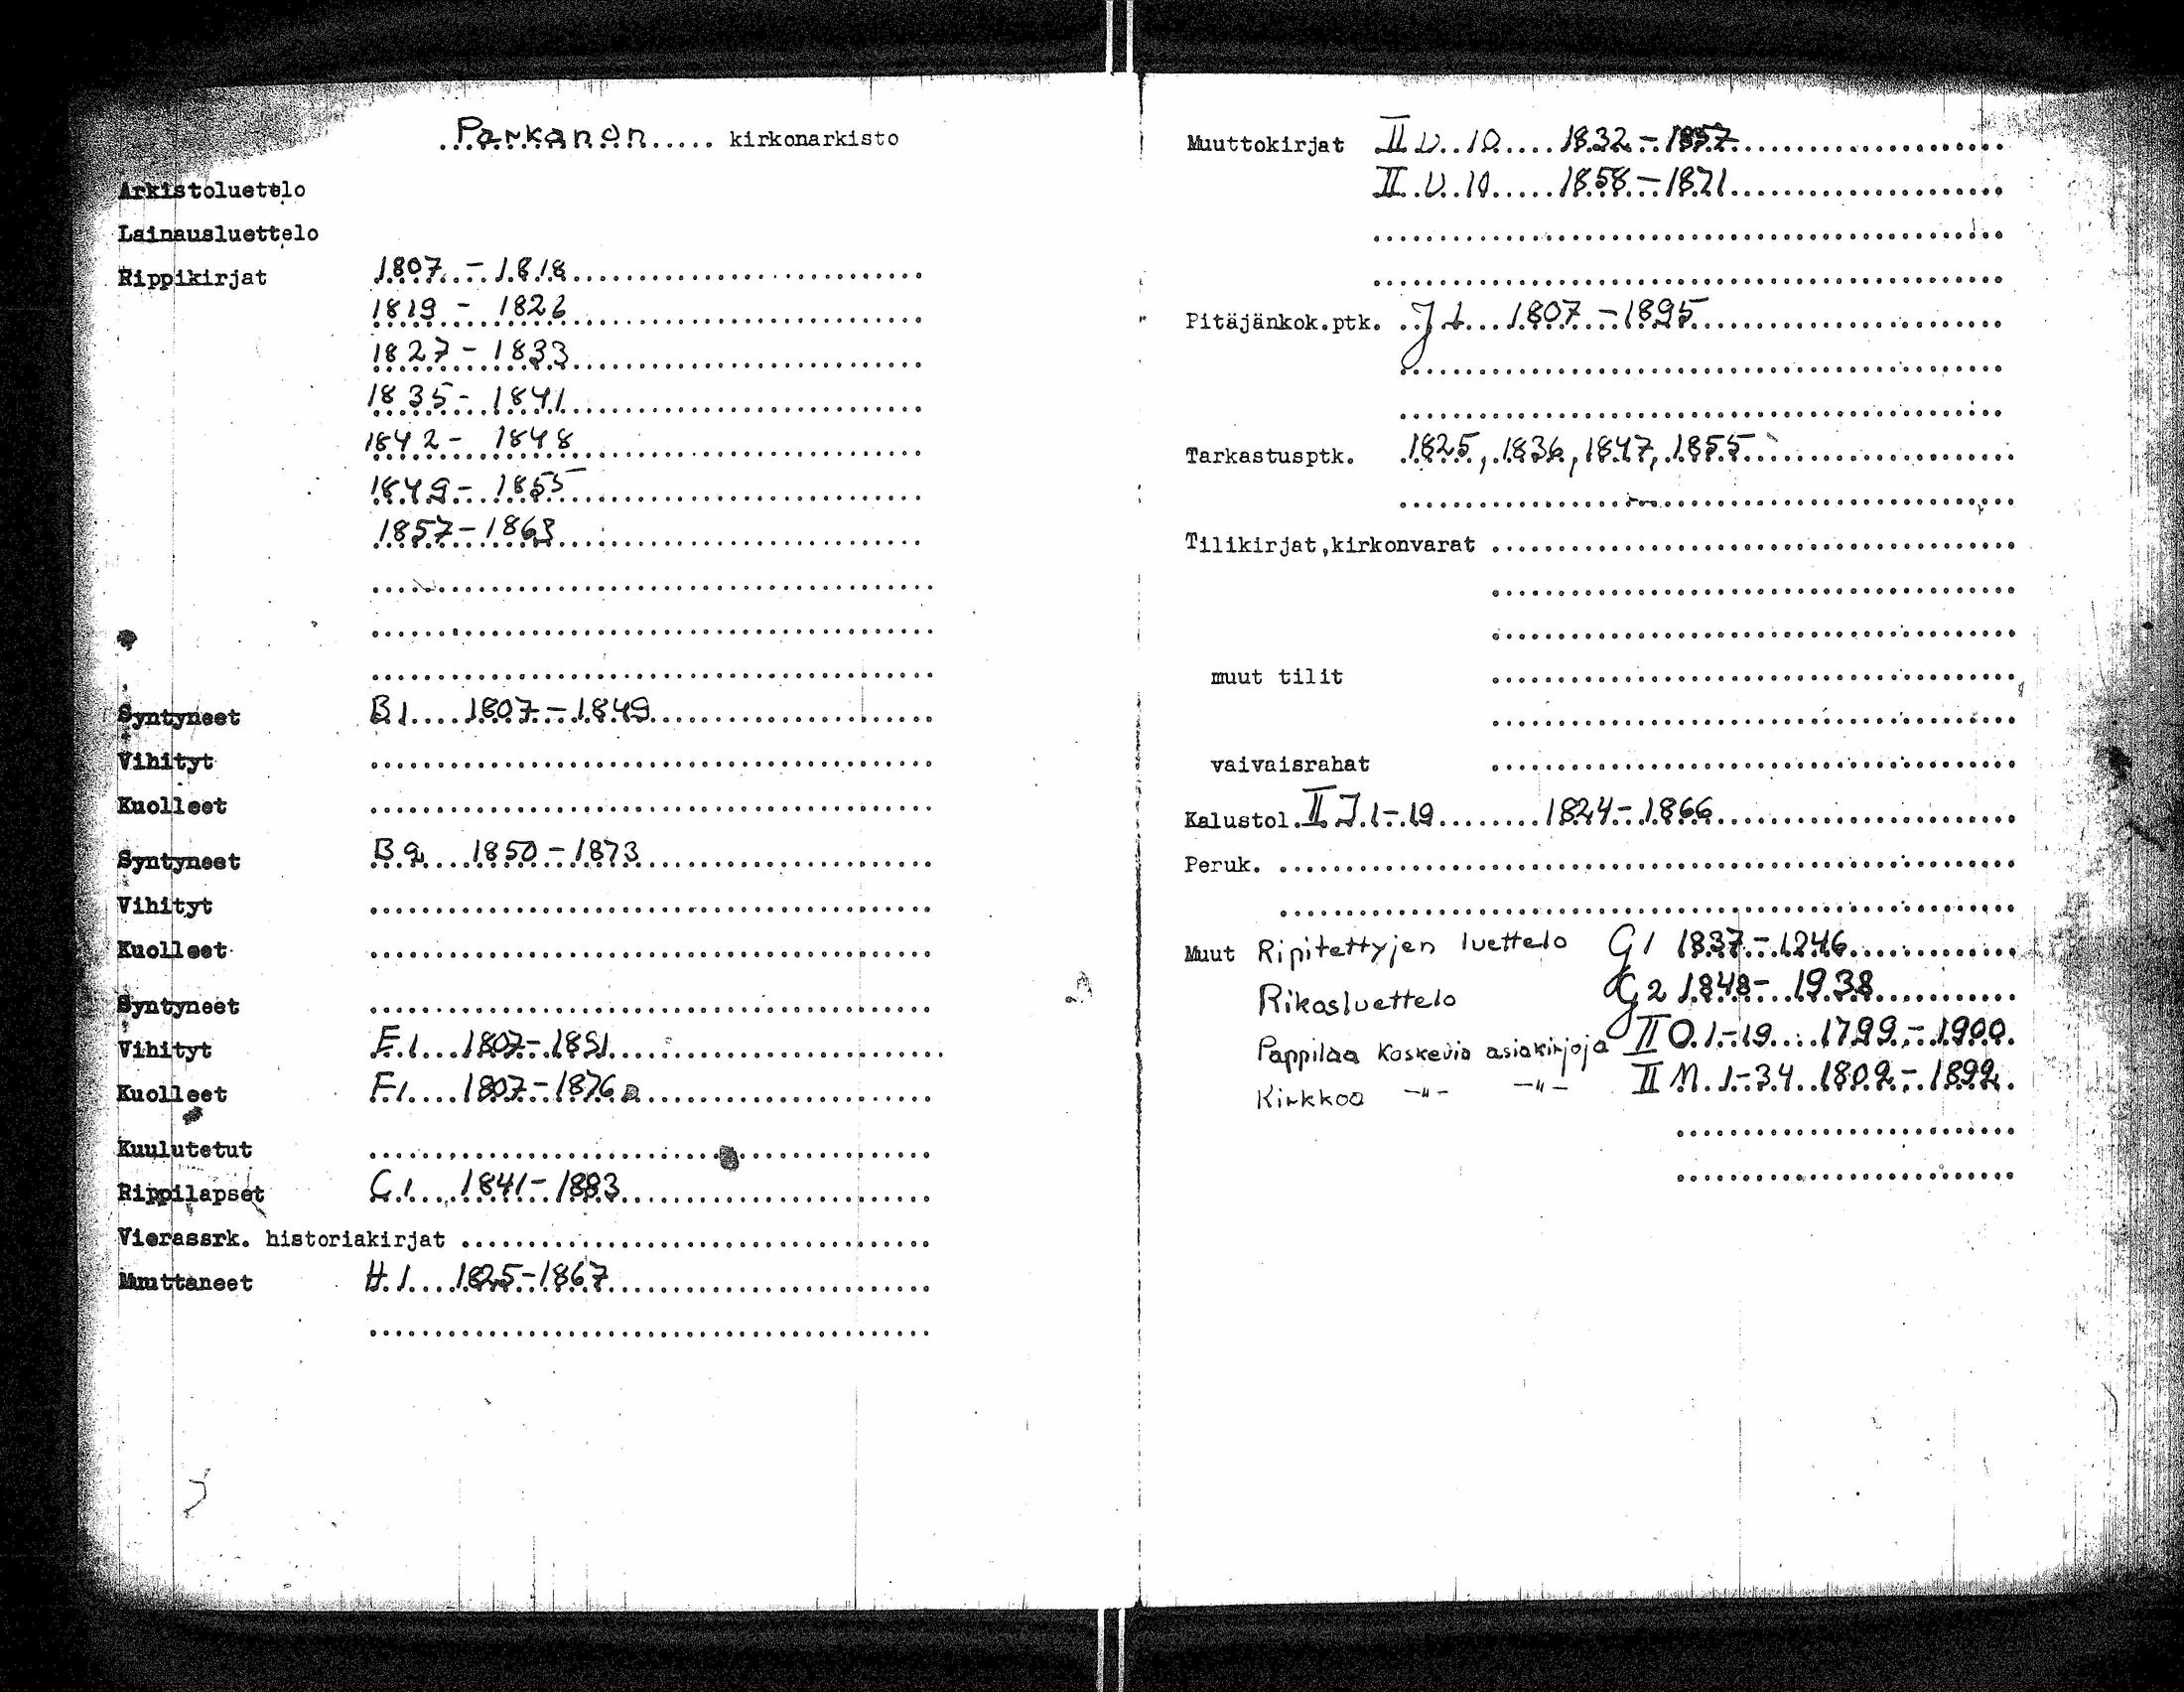 Parkanon kirkonarkisto
Arkistoluettelo
Lainausluettelo
Rippikirjat 1807 - 1818
1819 - 1826
1827 - 1833
1835 - 1841
1842 - 1848
1849 - 1855
1857 - 1863
Syntyneet B1 1807 - 1849
Vihityt
Kuolleet
Syntyneet B2 1850 - 1873
Vihityt
Kuolleet
Syntyneet
Vihityt E1 1807 - 1851
Kuolleet F1 1807 - 1876
Kuulutetut
Rippilapset C1 1841 - 1883
Vierassrk. historiakirjat
Muuttaneet H1 1825 - 1867
Muuttokirjat II 1832 - 1857
II 1858 - 1871
Pitäjänkok.ptk. J1 1807 - 1895
Tarkastusptk. 1825, 1836, 1847, 1855
Tilikirjat, kirkonvarat
muut tilit
vaivaisrahat
Kalustol. II J 1 - 19 1824 - 1866
Peruk.
Muut Ripitettyjen luettelo G1 1837 - 1246
Rikosluettelo G2 1848 - 1938
Pappilaa koskevia asiakirjoja II O 1 - 19 1799 - 1900
Kirkkoa -"- -"- II M 1 - 34 1802 - 1892